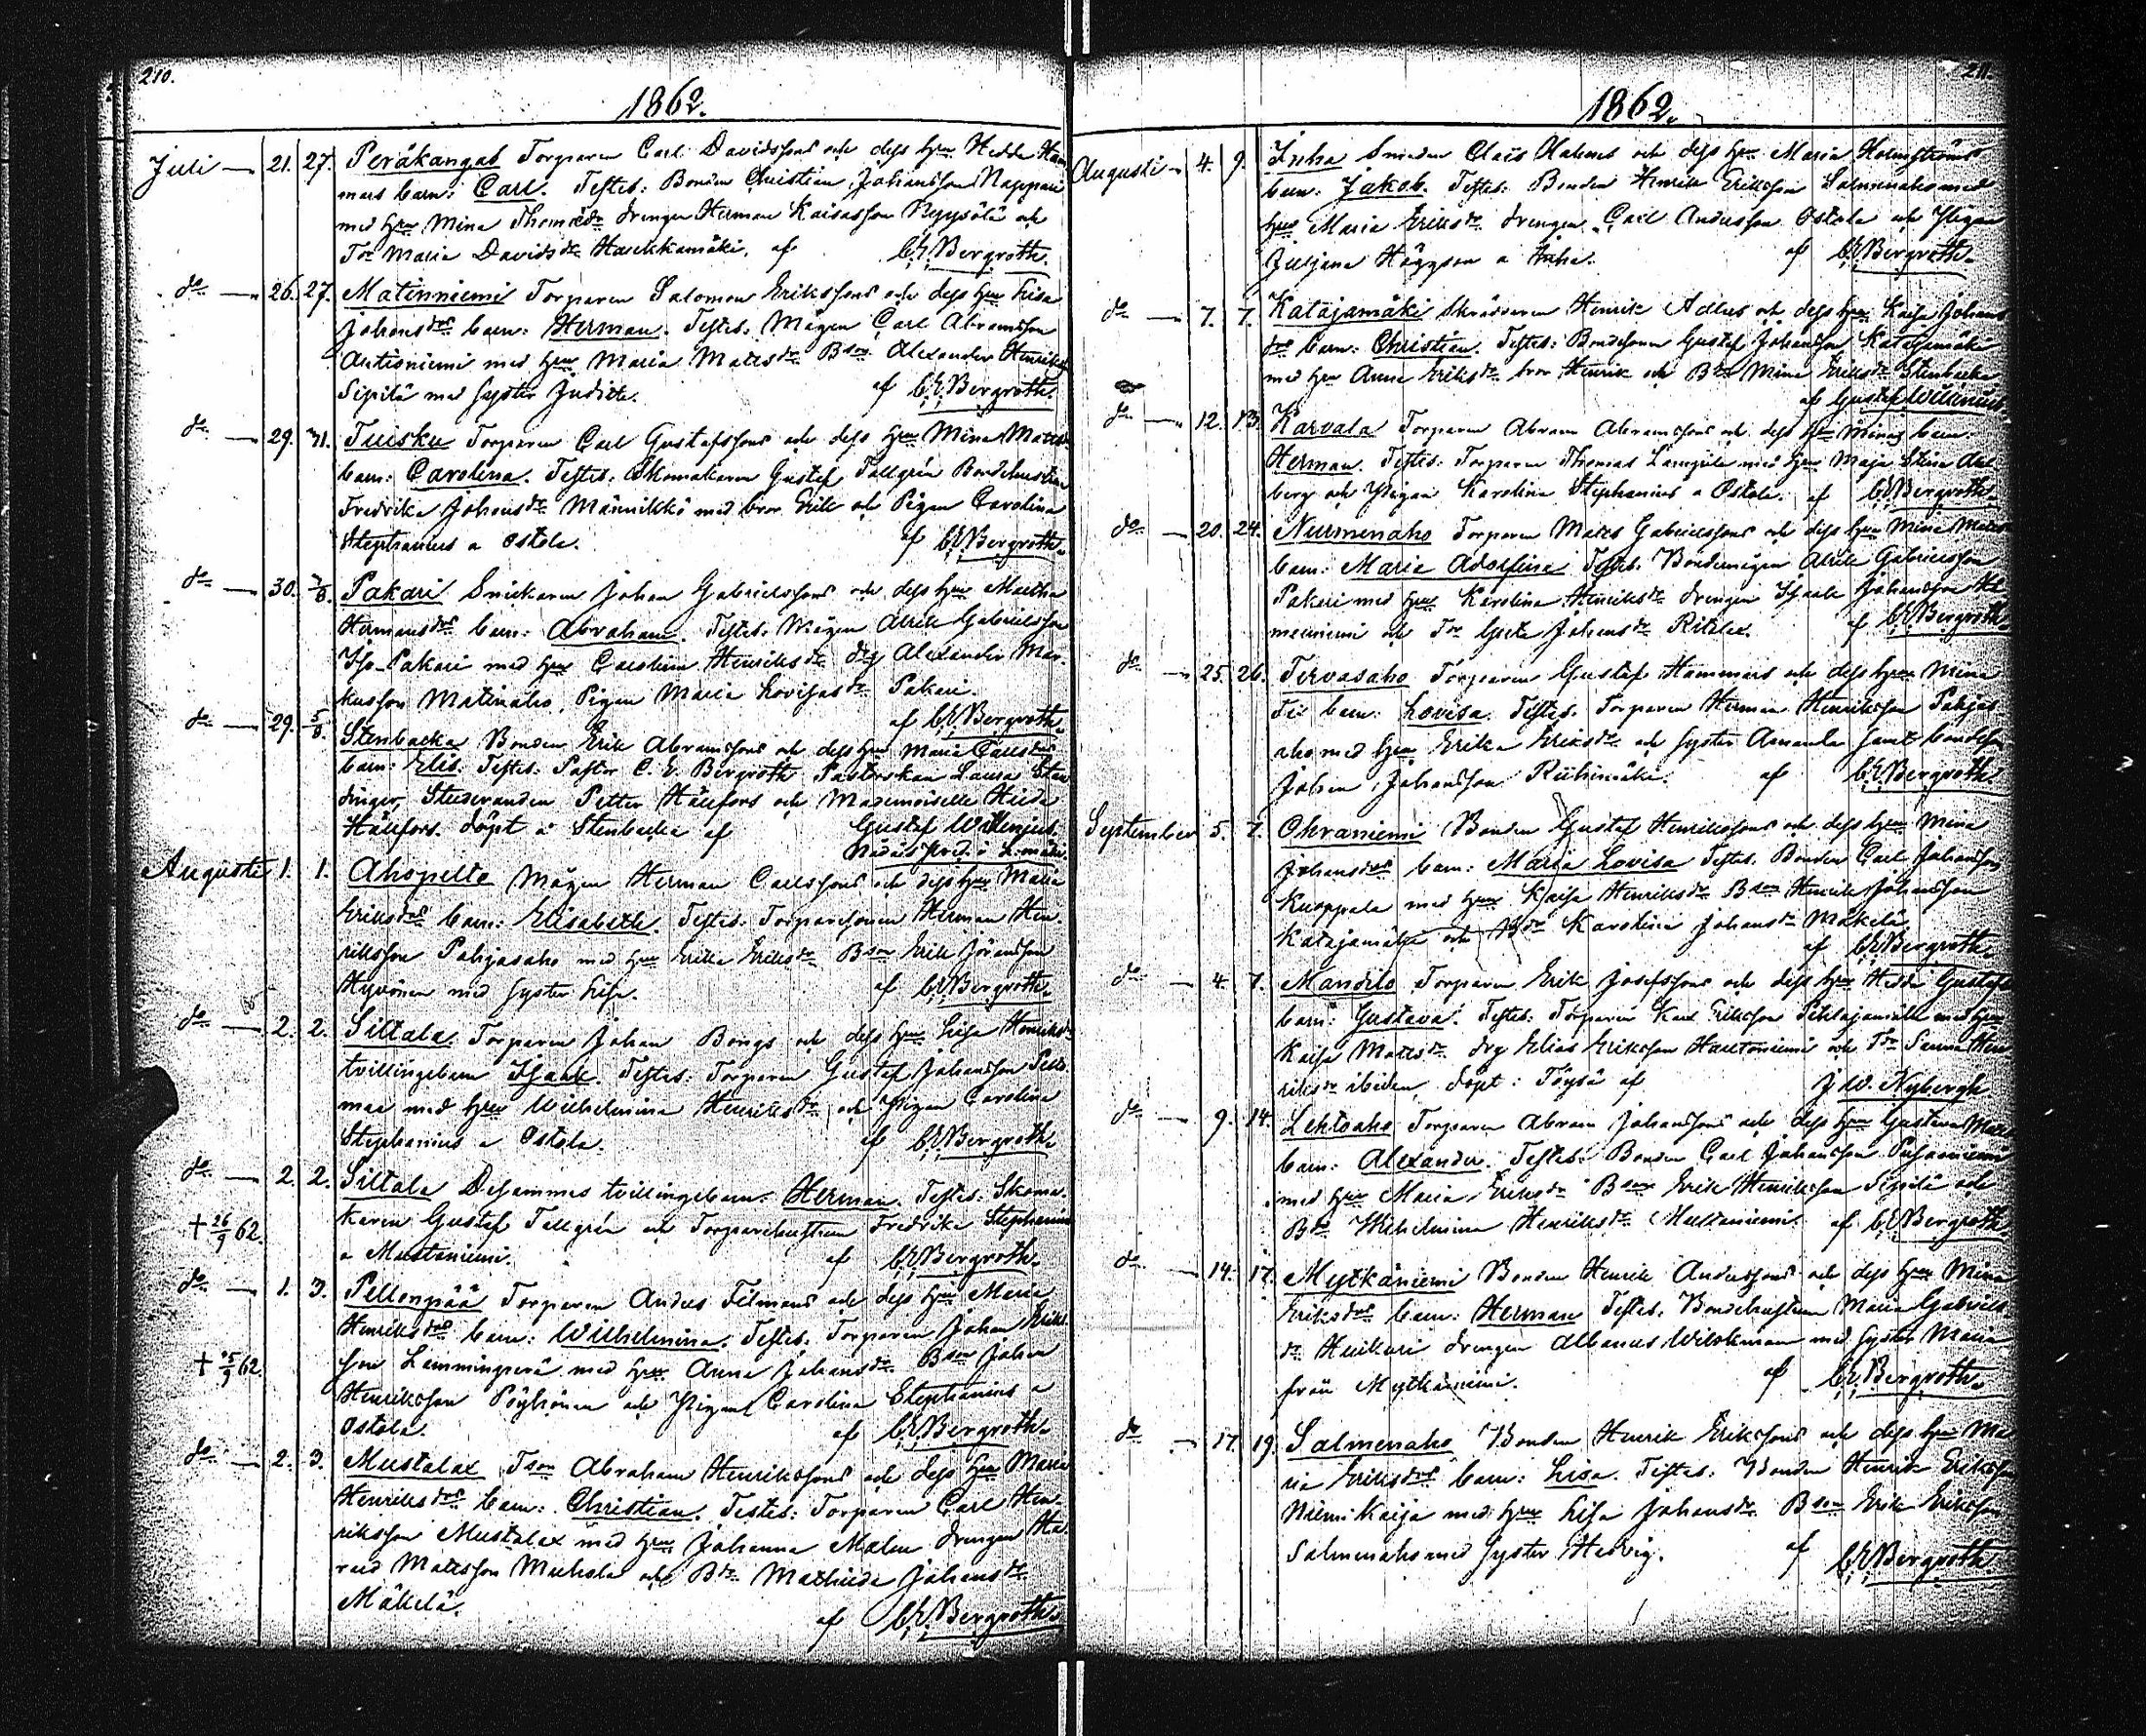 210.
1862.
Juli — 21. 27. Peräkangas Torparen Carl Davidssons och dess hru Hedda Ham
mars barn: Carl. Testes: Bonden Christian Johansson Nappari
med hru Mina Thomædr drengen Herman Kaisasson Ryysölä och
Tdr Maria Davidsdr Harckkamäki. af C,E,Bergroth.
do — 26. 27. Matinniemi Torparen Salomon Erikssons och dess hru Lisa
Johansdrs barn: Herman. Testes: Mågen Carl Abramsson
Antisniemi med hru Maria Matsdr Bson Alexander Henriksson
Sipilä med syster Judith. af C,E,Bergroth.
do — 29. 31. Tuisku Torparen Carl Gustafssons och dess hru Mina Matsdr
barn: Carolina. Testes: Skomakaren Gustaf Tallgrén Bondehustrun
Fredrika Johansdr Männikkö med bror Erik och Pigan Carolina
Stephanius a Ostola. af C,E,Bergroth.
do — 30. 3/8. Pakari Snickaren Johan Gabrielssons och dess hru Martha
Hermansdrs barn: Abraham. Testes: Mågen Alrik Gabrielsson
Iso-Pakari med hru Carolina Henriksdr drg Alexander Mar-
kusson Matinaho, Pigan Maria Lovisasdr Pakari.
af C,E,Bergroth.
do — 29. 5/8. Stenbacka Bonden Erik Abramssons och dess hru Maria Carlsdrs
barn: Elis. Testes: Pastor C. E. Bergroth Pastorskan Laura
Studeranden Petter Hällfors och Mademoiselle Hilda
Hällfors. döpt i Stenbacka af Gustaf Willenius.
Augusti 1. 1. Ahopelto Mågen Herman Carlssons och dess hru Maria
Eriksdrs barn: Elisabeth. Testes: Torparesonen Herman Hen-
riksson Pohjasaho med hru Erika Eriksdr Bson Erik Göransson
Hyvönen med syster Lisa. af C,E,Bergroth.
do — 2. 2. Siltala Torparen Johan Bongs och dess hru Lisa Henriksdr
tvillingebarn Isaak. Testes: Torparen Gustaf Johansson
maa med hru Wilhelmina Henriksdr och Pigan Carolina
Stephanius a Ostola. af C,E,Bergroth.
do — 2. 2. Siltala Desammes tvillingebarn: Herman. Testes: Skoma-
† 26/9 62. karen Gustaf Tallgrén och Torparehustrun Fredrika Stephanius
a Mustaniemi. af C,E,Bergroth.
do — 1. 3. Pellonpää Torparen Anders Filmans och dess hru Maria
Henriksdrs barn: Wilhelmina. Testes: Torparen Johan Eriks-
† 15/9 62 son Lamminperä med hru Anna Johansdr Bson Johan
Henriksson Pöyhönen och Pigan Carolina Stephanius a
Ostola. af C,E,Bergroth.
do — 2. 3. Mustalax Tson Abraham Henrikssons och dess hru Maria
Henriksdrs barn: Christian. Testes: Torparen Carl Hen-
riksson Mustalax med hru Johanna Malm drengen Ha-
rald Matsson Muhola och Bdr Mathilda Johansdr
Mäkelä. af C,E,Bergroth.
211.
1862.
Augusti — 4. 9. Inha Smeden Claës Alahns och dess hru Maria Holmströms
barn: Jakob. Testes: Bonden Henrik Eriksson Salmenaho med
hru Maria Eriksdr drengen Carl Andersson Ostola och Pigan
Juljana Häggson a Inha. af C,E,Bergroth.
do — 7. 7. Katajamäki Skräddaren Henrik Adlers och dess hru Kaisa Johans
drs barn: Christian. Testes: Bondesonen Gustaf Johansson Katajamäki
med hru Anna Eriksdr bror Henrik och Bdr Mina Eriksdr Stenbacka
af Gustaf Willenius.
do — 12. 13. Karvala Torparen Abram Abramssons och dess hru Minas barn:
Herman. Testes: Torparen Thomas Lampila med hru Maja Stina Ahl
berg och Pigan Karolina Stephanius a Ostola. af C,E,Bergroth.
do — 20. 24. Nurmenaho Torparen Mats Gabrielssons och dess hru Mina Mats
barn: Maria Adolfina Testes. Bondemågen Alrik Gabrielsson
Pakari med hru Karolina Henriksdr drengen Isaak Johansson
meniemi och Tdr Greta Johansdr Ritilax. af C,E,Bergroth.
do — 25. 26. Tervasaho Torparen Gustaf Hammars och dess hru Mina
barn: Lovisa. Testes. Torparen Herman Henriksson Pohjas
aho med hru Erika Eriksdr och syster Amanda samt bondeson
Johan Johansson Riihimäki. af C,E,Bergroth.
September 5. 7. Ohraniemi Bonden Gustaf Henrikssons och dess hru Mina
Johansdrs barn: Maria Lovisa Testes. Bonden Carl Johansson
Kuoppala med hru Kaisa Henriksdr Bson Henrik Johansson
Katajamäki och Bdr Karolina Johansdr Mäkelä
af C,E,Bergroth.
do — 4. 7. Mandilo Torparen Erik Josefssons och dess hru Hedda Gustafs
barn: Gustava. Testes: Torparen Karl Eriksson Pihlajamäki med hru
Kaisa Matsdr drg Elias Eriksson Hautoniemi och Tdr Sanna Hen
riksdr ibidem, döpt i Töysä af J. W. Nybergh
do — 9. 14. Lehtoaho Torparen Abram Johanssons och dess hru Gustava Mats
barn: Alexander. Testes: Bonden Carl Johansson Pusaniemi
med hru Maria Eriksdr Bson Erik Henriksson Sipilä och
Bdr Wilhelmina Henriksdr Mustaniemi. af C,E,Bergroth.
do — 14. 17. Mytkäniemi Bonden Henrik Anderssons och dess hru Mina
Eriksdrs barn: Herman Testes. Bondehustrun Maria Gabriels-
dr Huikuri drengen Albanus Wilckman med syster Maria
från Mytkäniemi. af C,E,Bergroth.
do — 17. 19. Salmenaho Bonden Henrik Erikssons och dess hru Ma
ria Eriksdrs barn: Lisa. Testes: Bonden Henrik Eriksson
Niemi Kaija med hru Lisa Johansdr Bson Erik Eriksson
Salmenaho med syster Hedvig. af C,E,Bergroth.